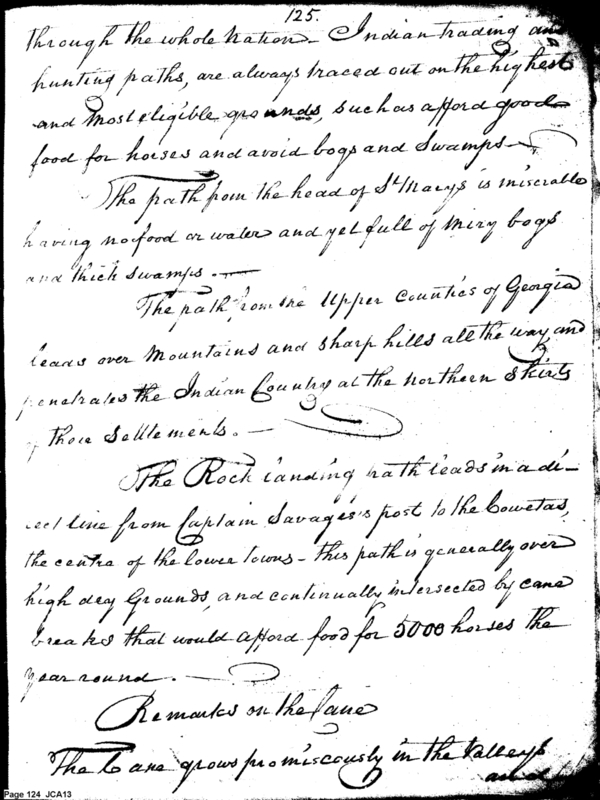 125.
through the whole Nation - Indian trading and
hunting paths, are always traced out on the highest
and most eligible grounds, such as afford good
food for horses and avoid bogs and Swamps -
The path from the head of St Marys is miserable
having no food or water and yet full of miry bogs
and thick swamps. -
The path, from the Upper Counties of Georgia
leads over Mountains and sharp hills all the way, and
penetrates the Indian Country at the northern Skirts
of those Settlements. -
The Rock landing path leads in a di-
rect line from Captain Savages's post to the Cowetas,
the centre of the lower towns - this path is generally over
high dry Grounds, and continually intersected by cane
breaks that would afford food for 5000 horses the
year round. -
Remarks on the Cane
The Cane grows promiscously in the Valleys
and
Page 124 JCA13